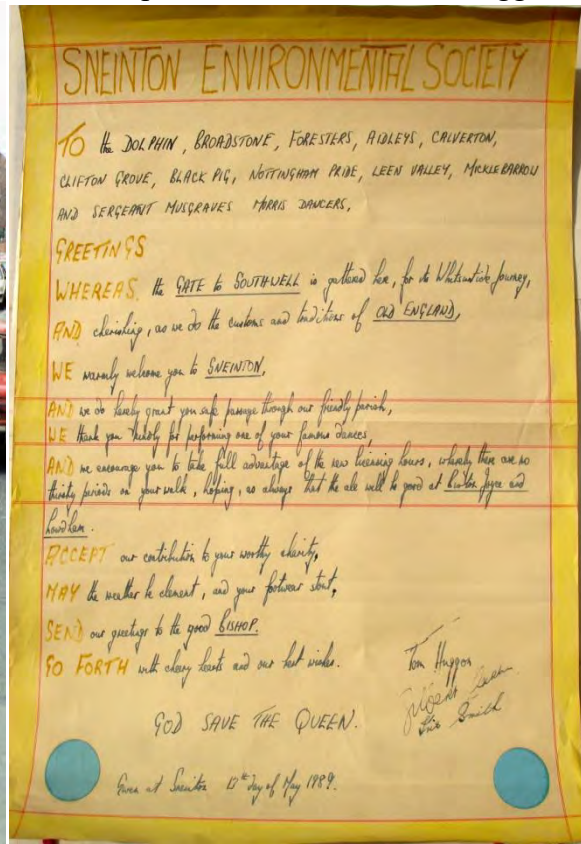 SNEINTON ENVIRONMENTAL SOCIETY
TO the DOLPHIN, BROADSTONE, FORESTERS, AIDLEYS, CALVERTON,
CLIFTON GROVE, BLACK PIG, NOTTINGHAM PRIDE, LEEN VALLEY, MICKLEBARROW
AND SERGEANT MUSGRAVES MORRIS DANCERS,
GREETINGS
WHEREAS, the GATE to SOUTHWELL is gathered here, for its Whitsuntide Journey,
AND cherishing, as we do the customs and traditions of OLD ENGLAND,
WE warmly welcome you to SNEINTON,
AND we do hereby grant you safe passage through our friendly parish,
WE thank you kindly for performing one of your famous dances,
AND we encourage you to take full advantage of the new licensing hours, whereby there are no
thirsty periods on your walk, hoping, as always that the ale will be good at Burton Joyce and
Lowdham.
ACCEPT our contribution to your worthy charity,
MAY the weather be clement, and your footwear stout,
SEND our greetings to the good BISHOP.
GO FORTH with cheery hearts and our best wishes.
Tom Huggon
Gilbert
Smith
GOD SAVE THE QUEEN.
Given at Sneinton 13th day of May 1989.